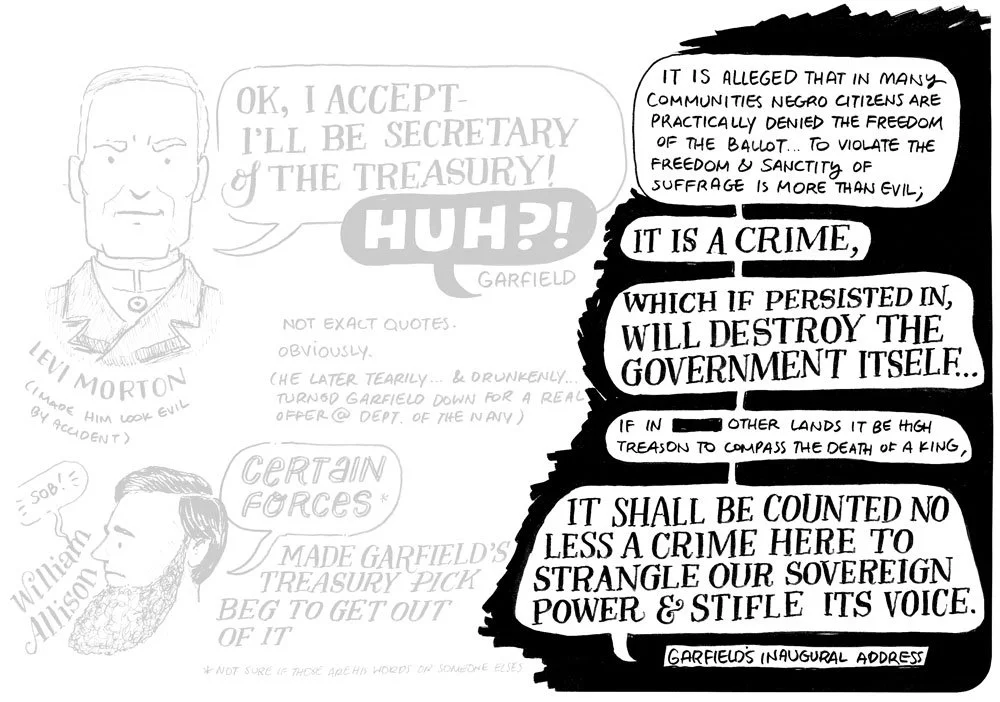 OK, I ACCEPT-
I'LL BE SECRETARY
of THE TREASURY!
HUH?!
GARFIELD
LEVI MORTON
(I MADE HIM LOOK EVIL
BY ACCIDENT)
NOT EXACT QUOTES.
OBVIOUSLY.
(HE LATER TEARILY... & DRUNKENLY...
TURNED GARFIELD DOWN FOR A REAL
OFFER @ DEPT. OF THE NAVY)
SOB!
William
Allison
CERTAIN
FORCES*
MADE GARFIELD'S
TREASURY PICK
BEG TO GET OUT
OF IT
*NOT SURE IF THESE ARE HIS WORDS OR SOMEONE ELSES
IT IS ALLEGED THAT IN MANY
COMMUNITIES NEGRO CITIZENS ARE
PRACTICALLY DENIED THE FREEDOM
OF THE BALLOT... TO VIOLATE THE
FREEDOM & SANCTITY OF
SUFFRAGE IS MORE THAN EVIL;
IT IS A CRIME,
WHICH IF PERSISTED IN,
WILL DESTROY THE
GOVERNMENT ITSELF..
IF IN OTHER LANDS IT BE HIGH
TREASON TO COMPASS THE DEATH OF A KING,
IT SHALL BE COUNTED NO
LESS A CRIME HERE TO
STRANGLE OUR SOVEREIGN
POWER & STIFLE ITS VOICE.
GARFIELD'S INAUGURAL ADDRESS